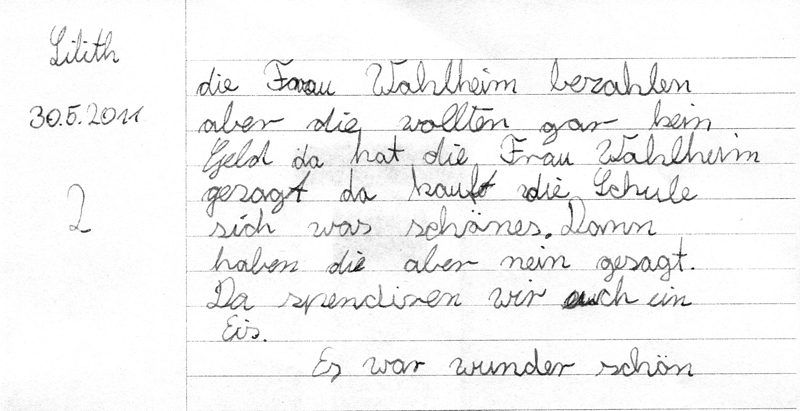 Lilith
30.5.2011
2
die Frau Wahlheim bezahlen
aber die wollten gar kein
Geld da hat die Frau Wahlheim
gesagt da kauft die Schule
sich was schönes. Dann
haben die aber nein gesagt.
Da spendiren wir euch ein
Eis.
Es war wunder schön